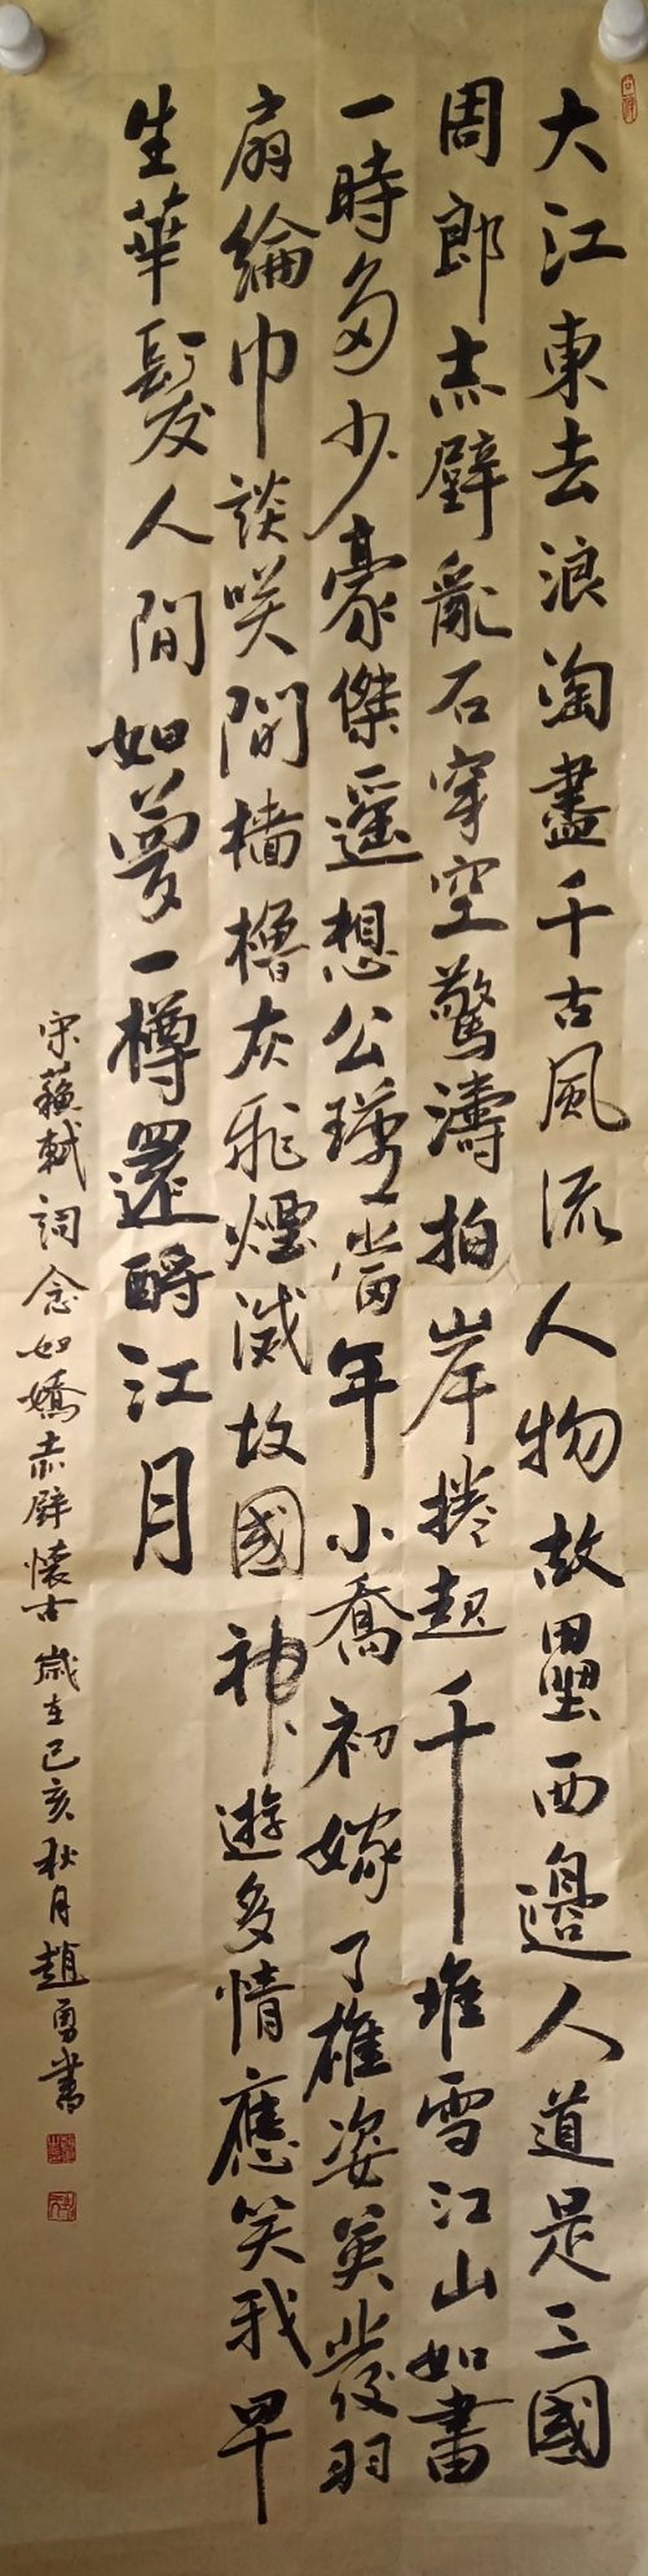 大江東去浪淘盡千古風流人物故壘西邊人道是三國
周郎赤壁亂石穿空驚濤拍岸捲起千堆雪江山如畫
一時多少豪傑遥想公瑾當年小喬初嫁了雄姿英發羽
扇綸巾談咲間檣櫓灰飛煙滅故國神遊多情應笑我早
生華髮人間如夢一樽還酹江月
宋蘇軾詞念奴嬌赤壁懷古歲在己亥秋月趙勇書